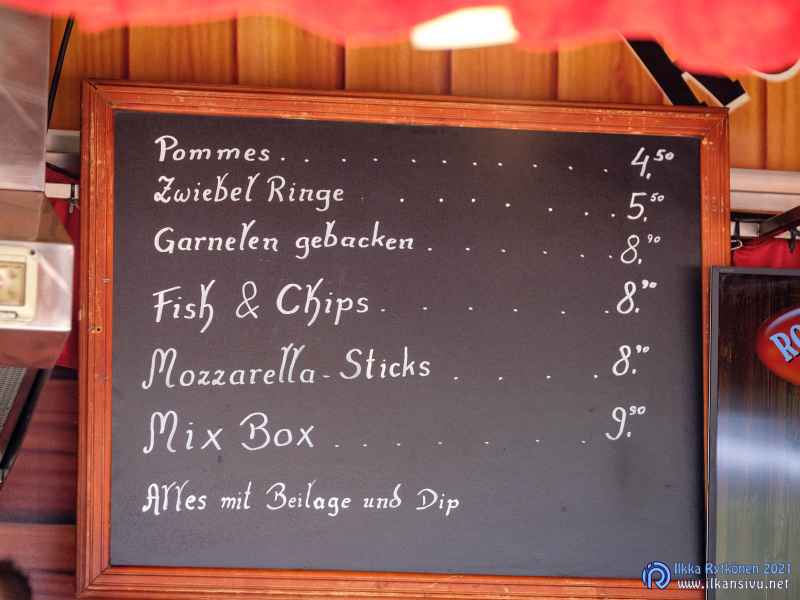 Pommes . . . . . . . . . . . 4.50
Zwiebel Ringe . . . . . . 5.50
Garnelen gebacken . . . . . 8.90
Fish & Chips . . . . . . 8.90
Mozzarella - Sticks . . . . 8.90
Mix Box . . . . . . 9.90
Alles mit Beilage und Dip
Ilkka Rytkönen 2021
www.ilkansivu.net